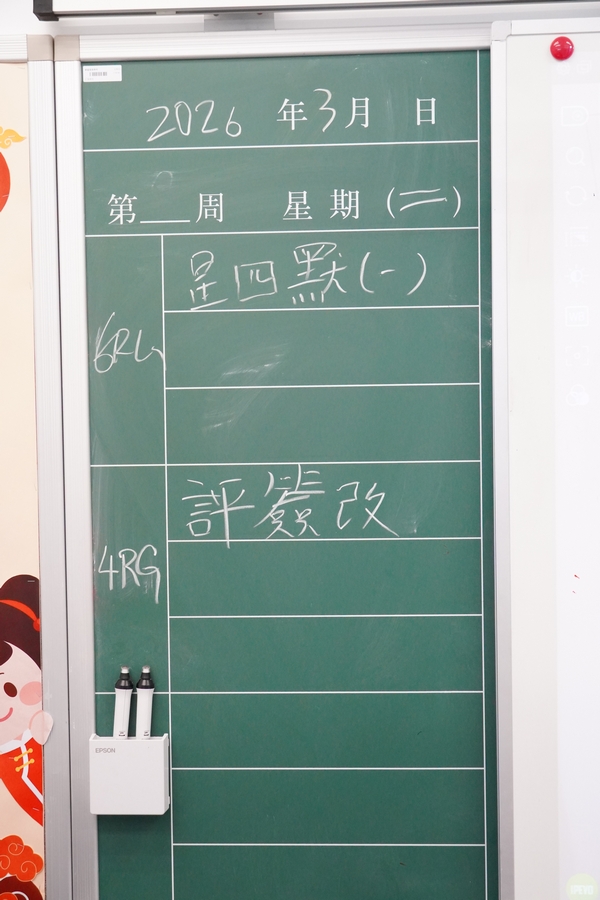 2026 年 3 月 日
第___周 星期 (二)
6RG
星四默(一)
4RG
評簽改
EPSON